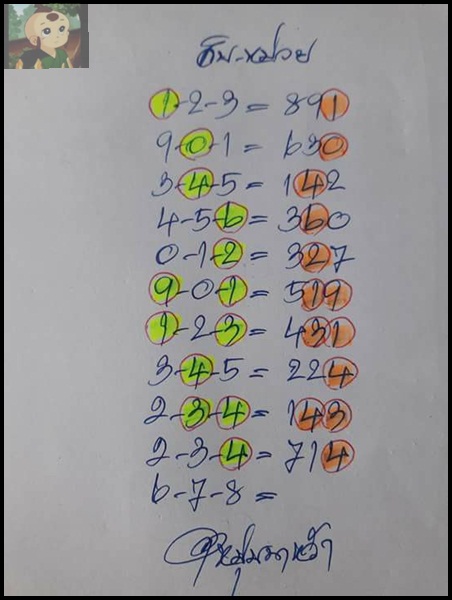 1-2-3 = 891
9-0-1 = 630
3-4-5 = 142
4-5-6 = 360
0-1-2 = 327
9-0-1 = 519
1-2-3 = 431
3-4-5 = 224
2-3-4 = 143
2-3-4 = 714
6-7-8 =